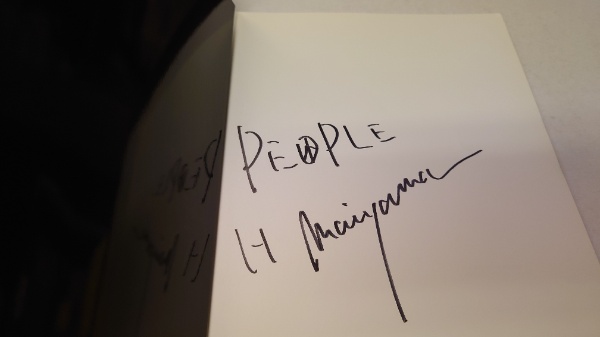 PEOPLE
H Maiyama